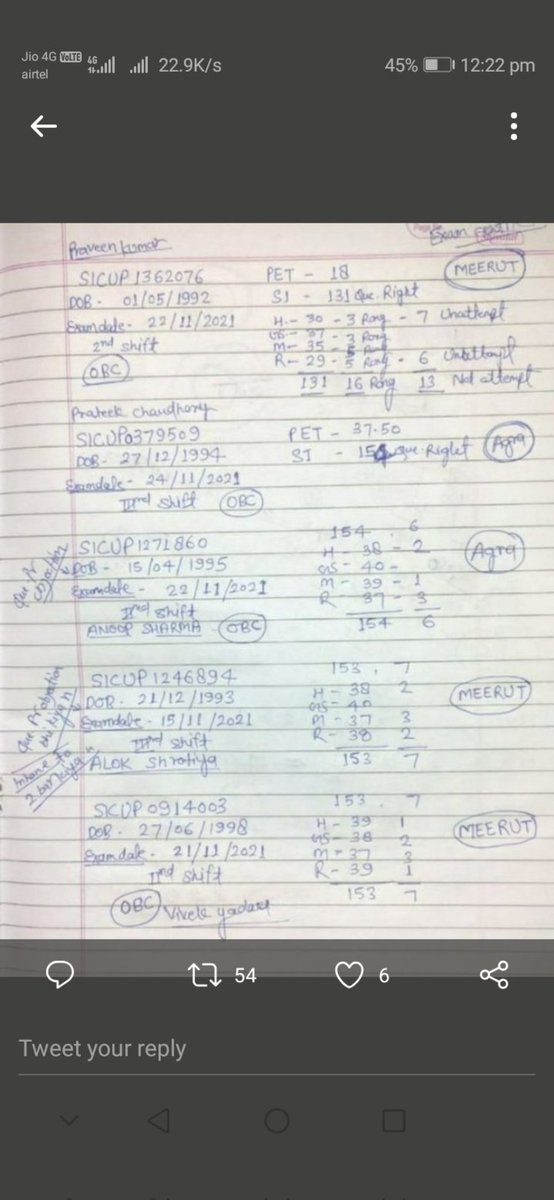 Jio 4G VoLTE 4G 22.9K/s 45% 12:22 pm
airtel
Exam
Praveen kumar
SICUP1362076 PET - 18 MEERUT
DOB - 01/05/1992 SI - 131 Que. Right
Examdate - 22/11/2021 H - 30 - 3 Rong - 7 Unattempt
2nd shift GS - 37 - 3 Rong
M - 35 - 5 Rong
OBC R - 29 - 5 Rong - 6 Unattempt
131 16 Rong 13 Not attempt
Prateek chaudhary
SICUP0379509 PET - 37.50
DOB - 27/12/1994 SI - 154 Que. Right Agra
Examdate - 24/11/2021
IIIrd shift OBC
154 . 6
SICUP1271860 H - 38 - 2 Agra
DOB - 15/04/1995 GS - 40 -
Examdate - 22/11/2021 M - 39 - 1
IInd shift R 37 - 3
ANOOP SHARMA OBC 154 6
153 . 7
SICUP1246894 H - 38 2 MEERUT
DOB - 21/12/1993 GS - 40
Examdate - 15/11/2021 M - 37 3
IIIrd shift R - 38 2
ALOK Shrotiya 153 7
2
153 . 7
SICUP0914003 H - 39 1
DOB - 27/06/1998 GS - 38 2 MEERUT
Examdate - 21/11/2021 M - 37 3
IInd shift R - 39 1
153 7
OBC Vivek yadav
54 6
Tweet your reply